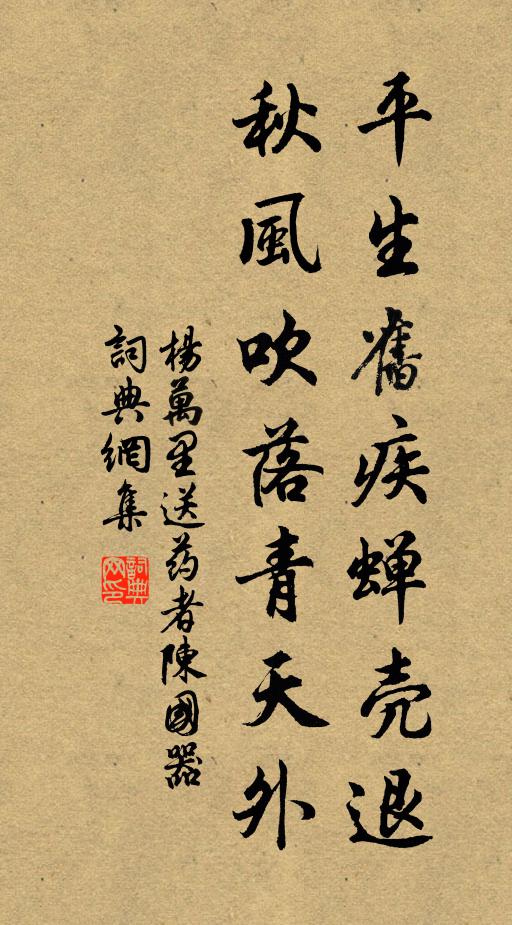 平生舊疾蝉壳退
秋風吹落青天外
楊萬里送药者陳國器
詞典網集
詞典網印